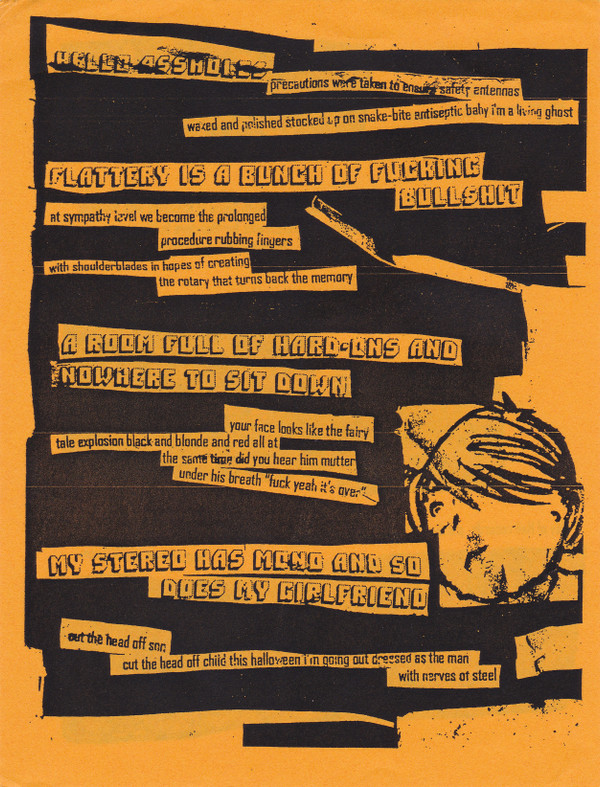 HELLO ASSHOLES
precautions were taken to ensure safety antennas
waxed and polished stocked up on snake-bite antiseptic baby i'm a living ghost
FLATTERY IS A BUNCH OF FUCKING
BULLSHIT
at sympathy level we become the prolonged
procedure rubbing fingers
with shoulderblades in hopes of creating
the rotary that turns back the memory
A ROOM FULL OF HARD-ONS AND
NOWHERE TO SIT DOWN
your face looks like the fairy
tale explosion black and blonde and red all at
the same time did you hear him mutter
under his breath "fuck yeah it's over"
MY STEREO HAS MONO AND SO
DOES MY GIRLFRIEND
cut the head off
cut the head off child this halloween i'm going out dressed as the man
with nerves of steel